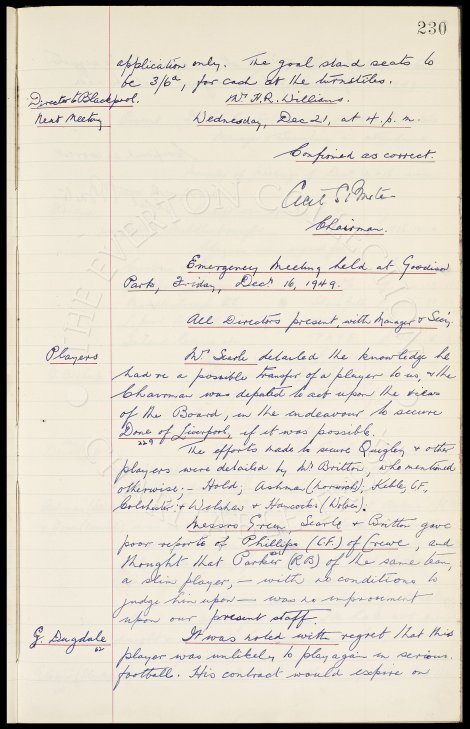 230
application only. The goal stand seats to
be 3/6d, for cash at the turnstiles.
Director to Blackpool. Mr H.R. Williams.
Next Meeting Wednesday, Dec 21, at 4.p.m.
Confirmed as correct.
Cecil S.
Chairman.
Emergency Meeting held at Goodison
Park, Friday, Decr 16, 1949.
All Directors present, with Manager & Secy.
Players Mr Searle detailed the knowledge he
had re a possible transfer of a player to us, & the
Chairman was deputed to act upon the views
of the Board, in the endeavour to secure
Done of Liverpool, if it was possible.
229
The efforts made to secure Quigley & other
players were detailed by Mr Britton, who mentioned
otherwise:- Hold; Ashman (Norwich); Keble, CF,
Colchester & Walshaw & Hancocks (Wolves).
Messrs Green Searle & Britton gave
poor reports of Phillips (C.F.) of Crewe, and
thought that Parker (RB) of the same team,
a slim player, - with no conditions to
judge him upon - was no improvement
upon our present staff.
G. Dugdale It was noted with regret that this
62
player was unlikely to play again in serious
football. His contract would expire on
THE EVERTON COLLECTION